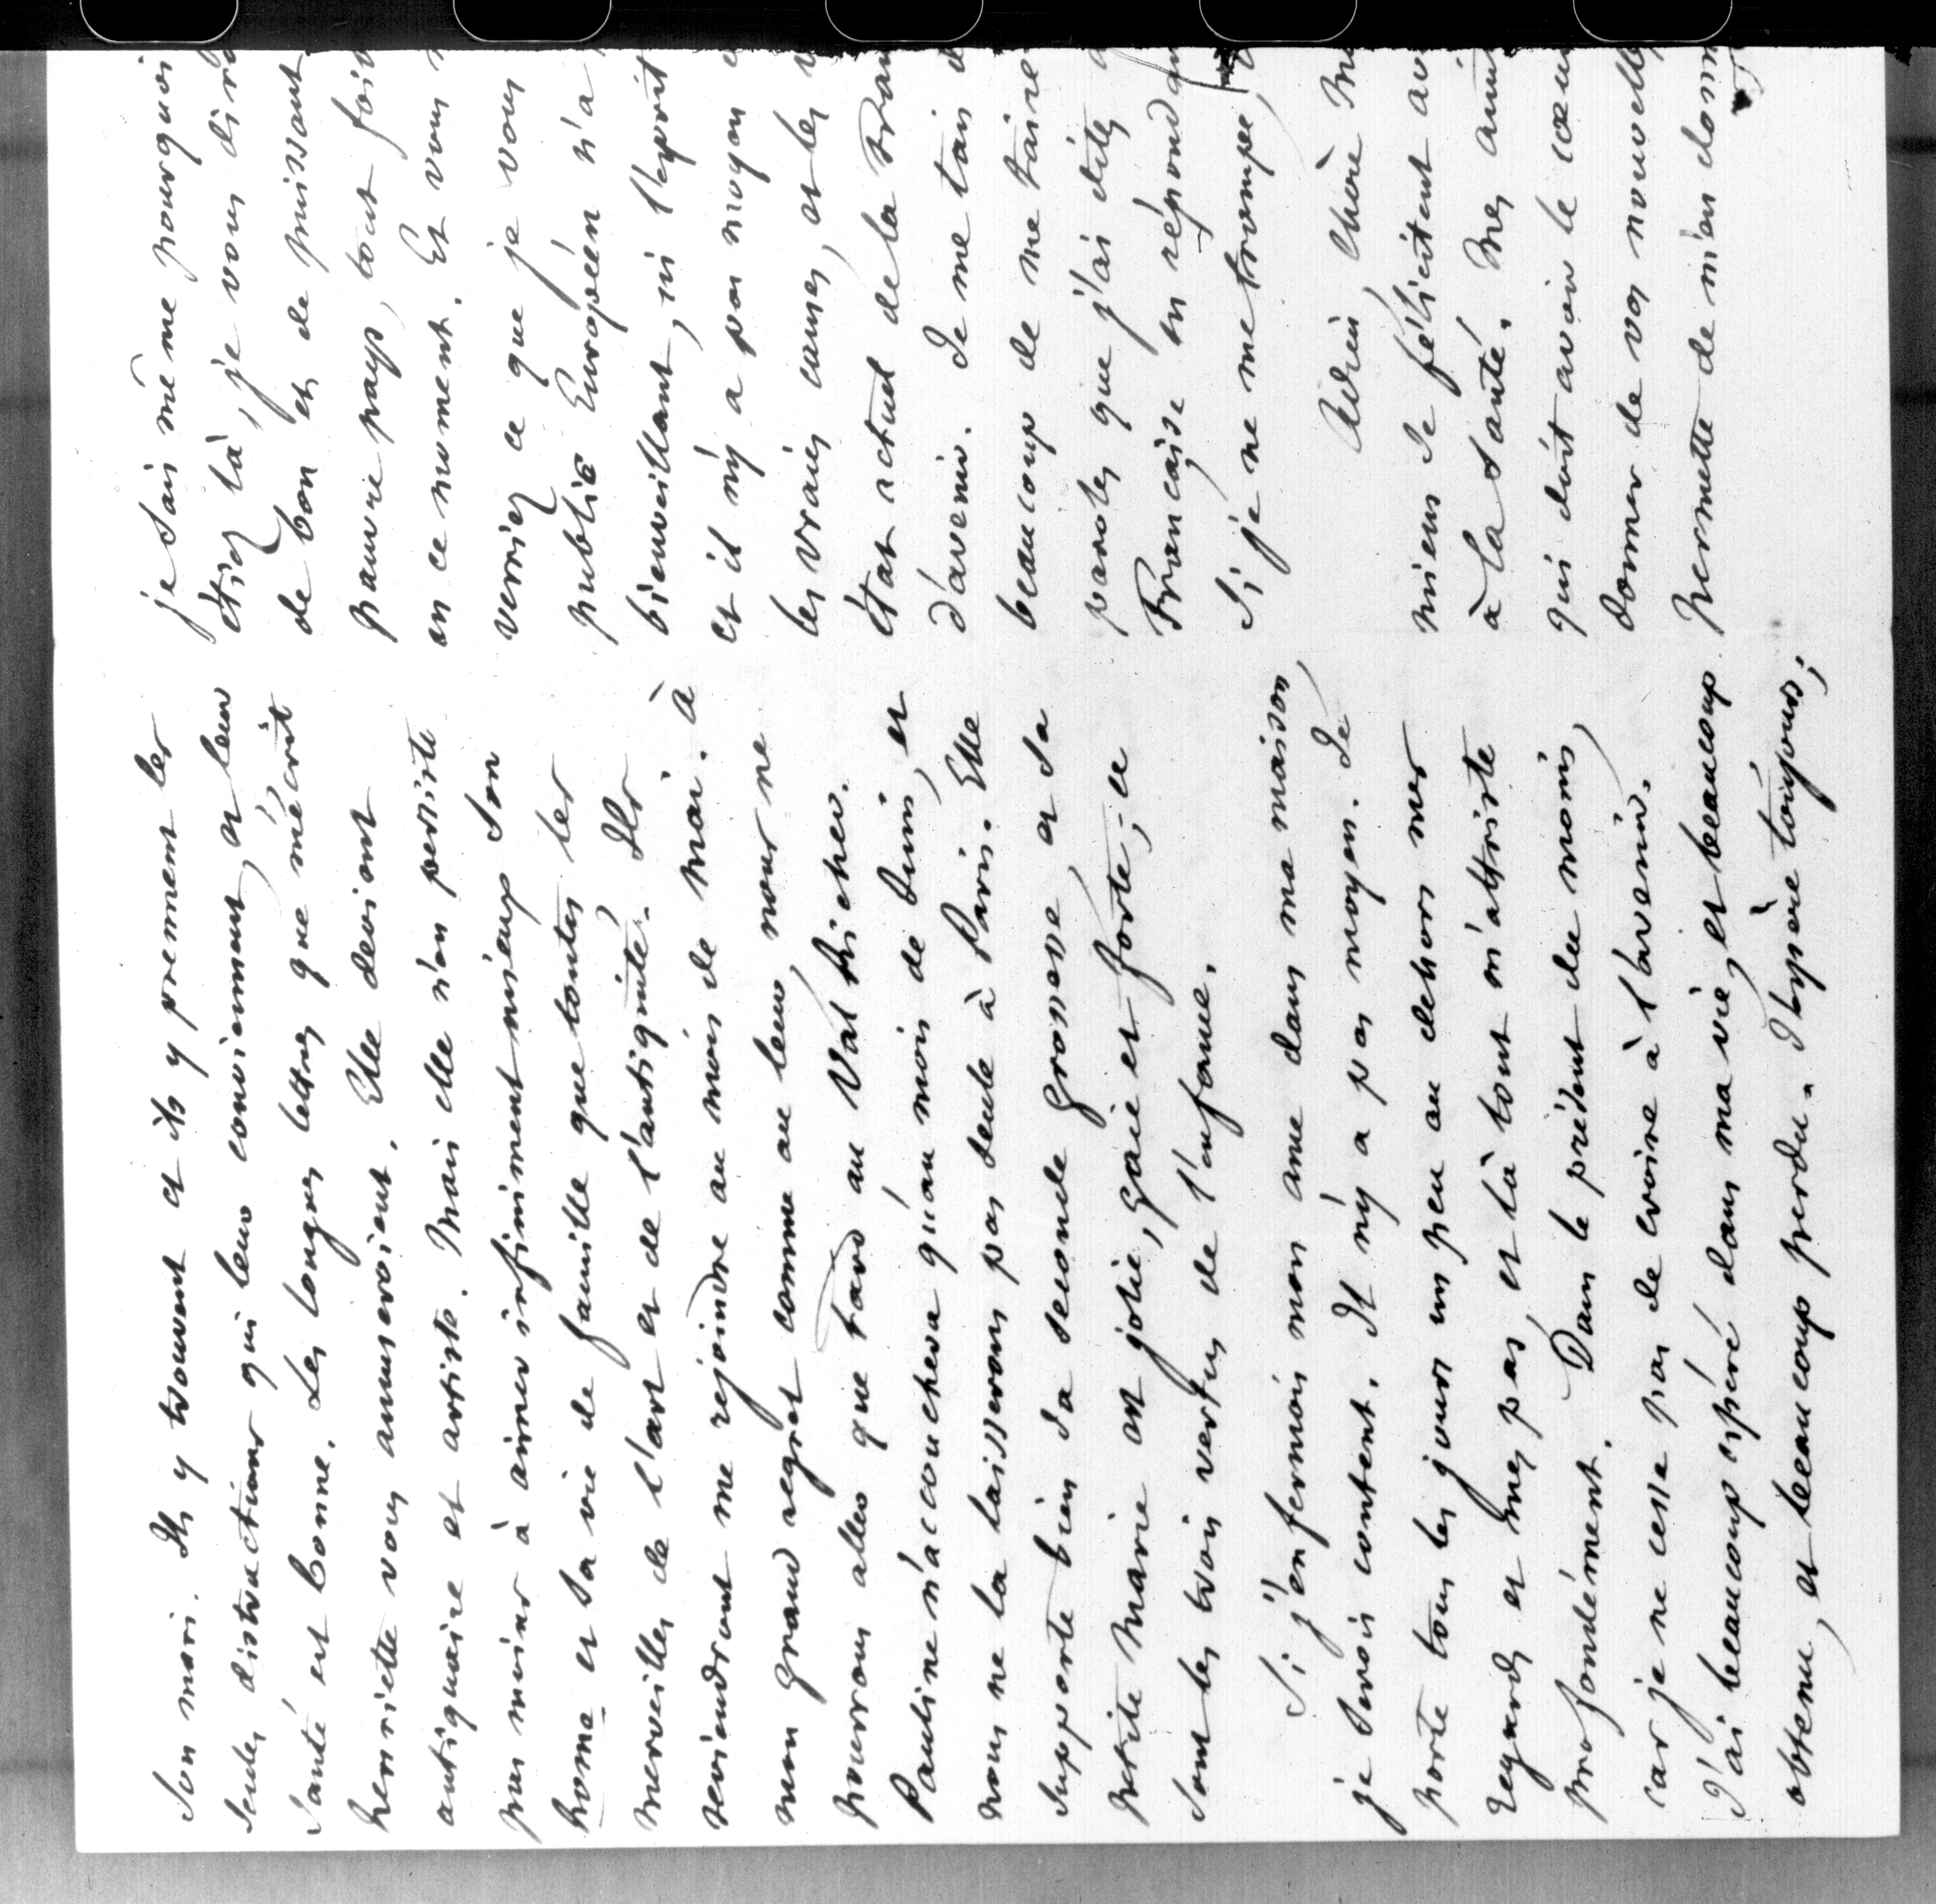 son mari. Ils y trouvent et ils y prennent les
seules distractions qui leur conviennent, et leur
santé est bonne. Les longues lettres que m'écrit
henriette vous amuseroient. Elle devient
antiquaire et artiste. Mais elle n'en persiste
pas moins à aimer infiniment mieux son
home et sa vie de famille que toutes les
merveilles de l'art et de l'antiquité. Ils
reviendront me rejoindre au mois de mai. à
mon grand regret comme au leur, nous ne
pourrons aller que tard au Val Richer.
Pauline n'accouchera qu'au mois de Juin, et
nous ne la laisserons pas seule à Paris. Elle
supporte bien sa seconde grossesse, et sa
petite Marie est jolie, gaie et forte; ce
sont les trois vertus de l'enfance.
Si j'enfermois mon ame dans ma maison,
je serois content. Il n'y a pas moyen. Je
porte tous les jours un peu au dehors mes
regards et mes pas, et là tout m'attriste
profondément. Dans le présent du moins,
car je ne cesse pas de croire à l'avenir.
J'ai beaucoup espéré dans ma vie, et beaucoup
obtenu, et beaucoup perdu. J'espère toujours;
je sais même pourquoi
étiez là, je vous dirois
de bon et de puissant
pauvre pays, tout
en ce moment. Et vous
verriez ce que je vous
public Européen n'a
bienveillant, ni l'esprit
et il n'y a pas moyen
les vraies causes, et les
état actuel de la
d'avenir. Je me tais
beaucoup de me taire
paroles que j'ai dites
Française en
si je ne me trompe,
Adieu, chère
miens se félicitent
à la santé. Mes
qui doit avoir le
donner de vos
permette de m'en